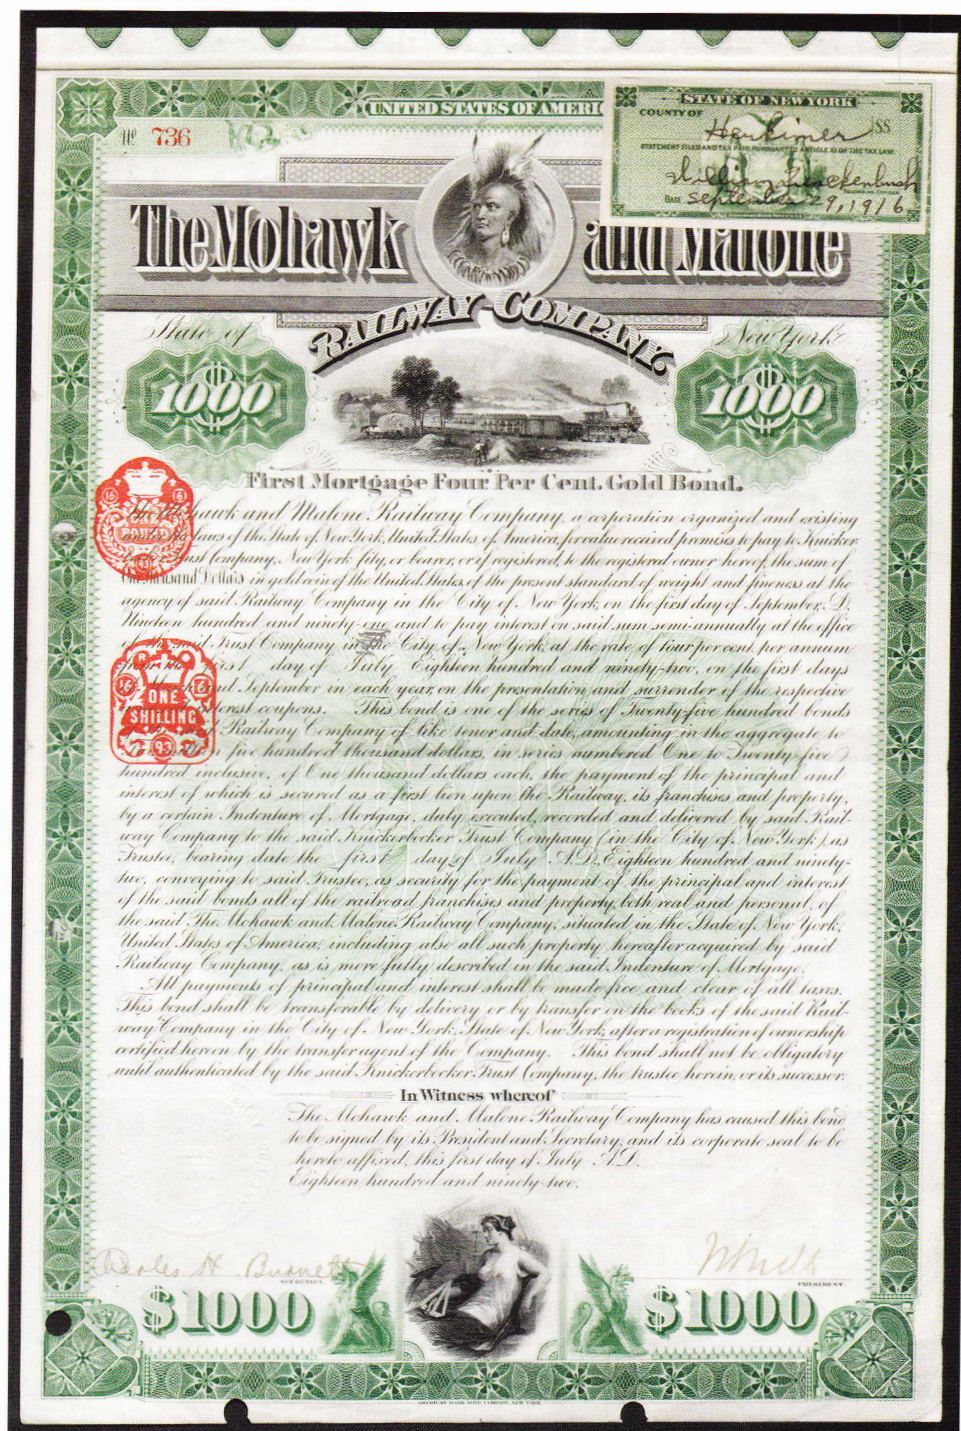 UNITED STATES OF AMERIC
No 736
STATE OF NEW YORK
COUNTY OF Herkimer SS
STATEMENT FILED AND TAX PAID PURSUANT TO ARTICLE XI OF THE TAX LAW.
William Quackenbush
DATE September 29, 1916
The Mohawk and Malone
RAILWAY COMPANY.
State of New York
1000 1000
First Mortgage Four Per Cent. Gold Bond.
Mohawk and Malone Railway Company, a corporation organized and existing
under laws of the State of New York, United States of America, for value received promises to pay to Knicker
Trust Company, New York City, or bearer, or if registered, to the registered owner hereof, the sum of
One thousand Dollars in gold coin of the United States, of the present standard of weight and fineness at the
agency of said Railway Company in the City of New York, on the first day of September, D.
Nineteen hundred and ninety-one and to pay interest on said sum semi-annually at the office
of the said Trust Company in the City of New York, at the rate of four per cent. per annum
first day of July Eighteen hundred and ninety-two, on the first days
and September in each year, on the presentation and surrender of the respective
interest coupons. This bond is one of the series of Twenty-five hundred bonds
Railway Company of like tenor and date, amounting in the aggregate to
five hundred thousand dollars, in series numbered One to Twenty-five
hundred inclusive, of One thousand dollars each, the payment of the principal and
interest of which is secured as a first lien upon the Railway, its franchises and property,
by a certain Indenture of Mortgage, duly executed, recorded and delivered by said Rail-
way Company to the said Knickerbocker Trust Company (in the City of New York) as
Trustee, bearing date the first day of July A.D. Eighteen hundred and ninety-
two, conveying to said Trustee, as security for the payment of the principal and interest
of the said bonds all of the railroad franchises and property, both real and personal, of
the said The Mohawk and Malone Railway Company, situated in the State of New York,
United States of America, including also all such property hereafter acquired by said
Railway Company, as is more fully described in the said Indenture of Mortgage.
All payments of principal and interest shall be made free and clear of all taxes.
This bond shall be transferable by delivery or by transfer on the books of the said Rail-
way Company in the City of New York, State of New York, after a registration of ownership
certified hereon by the transfer agent of the Company. This bond shall not be obligatory
until authenticated by the said Knickerbocker Trust Company, the trustee herein, or its successor.
ONE
SHILLING
93
In Witness whereof
The Mohawk and Malone Railway Company has caused this bond
to be signed by its President and Secretary, and its corporate seal to be
hereto affixed, this first day of July A.D.
Eighteen hundred and ninety-two.
Charles H. Burnett
SECRETARY. PRESIDENT.
$1000 $1000
AMERICAN BANK NOTE COMPANY, NEW YORK